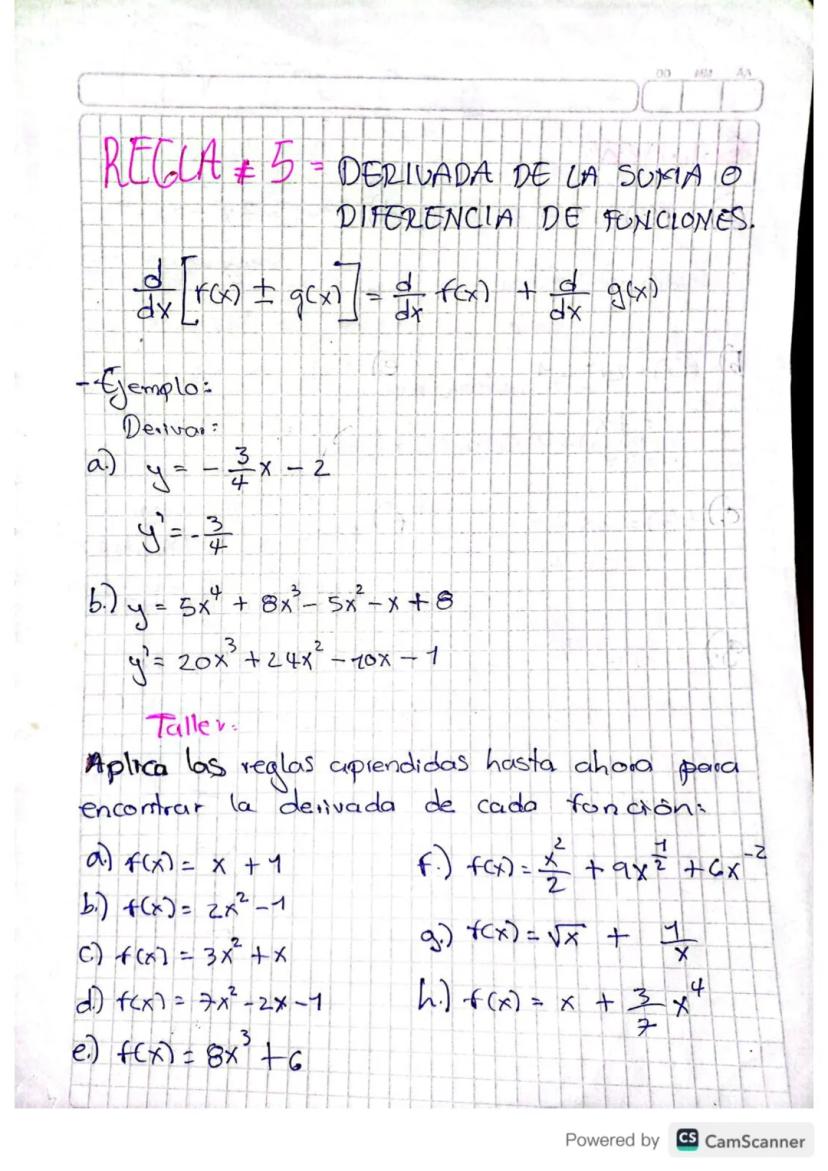 DD MM AA
REGLA # 5 = DERIVADA DE LA SUMA O
DIFERENCIA DE FUNCIONES.
d/dx [f(x) ± g(x)] = d/dx f(x) + d/dx g(x)
- Ejemplo:
Derivar:
a.) y = - 3/4 x - 2
y' = - 3/4
b.) y = 5x⁴ + 8x³ - 5x² - x + 8
y' = 20x³ + 24x² - 10x - 1
Taller:
Aplica las reglas aprendidas hasta ahora para
encontrar la derivada de cada función:
a.) f(x) = x + 1
b.) f(x) = 2x² - 1
c.) f(x) = 3x² + x
d.) f(x) = 7x² - 2x - 1
e.) f(x) = 8x³ + 6
f.) f(x) = x²/2 + 9x^(1/2) + 6x⁻²
g.) f(x) = √x + 1/x
h.) f(x) = x + 3/7 x⁴
Powered by CS CamScanner